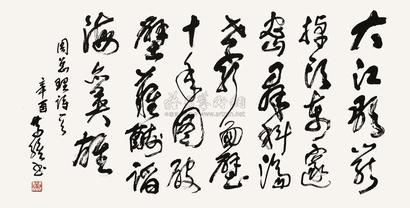 大江歌罷
掉頭東邃
密群科濟
世窮面壁
十年圖破
壁難酬蹈
海亦英雄
周總理詩一首
辛酉